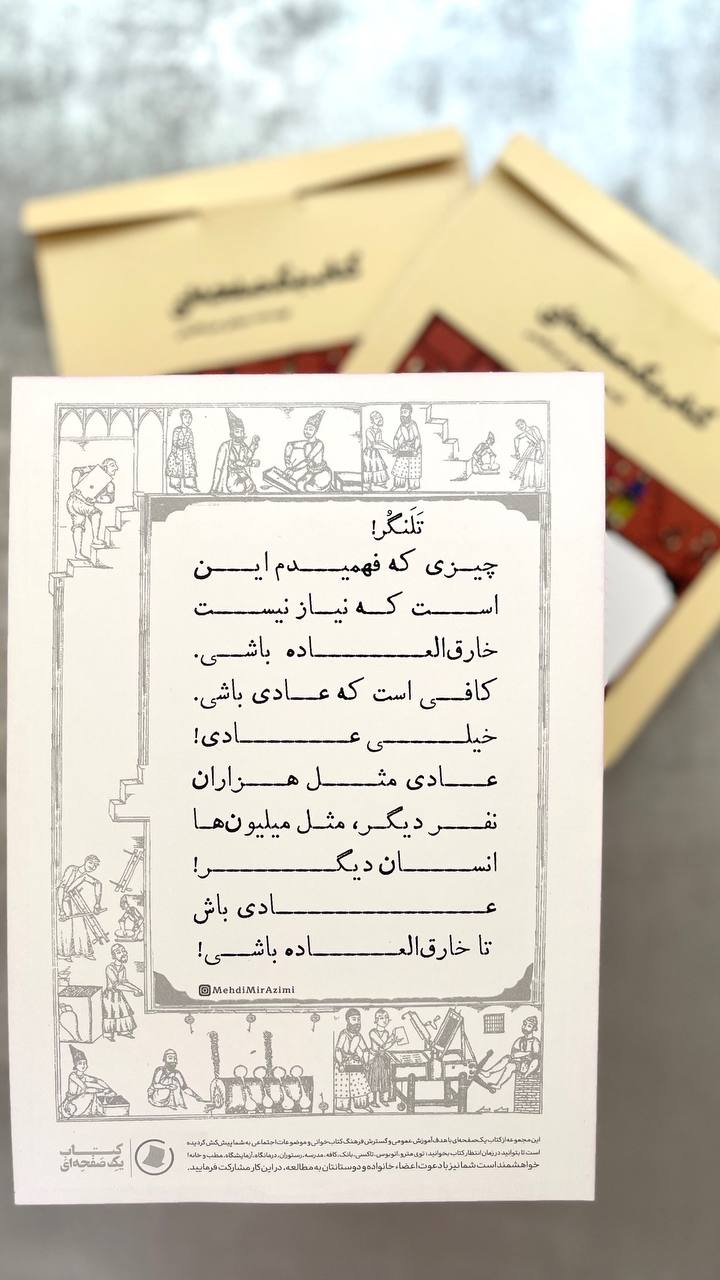 کتاب یک‌صفحه‌ای
کتاب یک‌صفحه‌ای
تَلَنگُر!
چیزی که فهمیدم این
است که نیاز نیست
خارق‌العاده باشی.
کافی است که عادی باشی.
خیلی عادی!
عادی مثل هزاران
نفر دیگر، مثل میلیون‌ها
انسان دیگر!
عادی باش
تا خارق‌العاده باشی!
MehdiMirAzimi
این مجموعه از کتاب یک‌صفحه‌ای با هدف آموزش عمومی و گسترش فرهنگ کتاب‌خوانی و موضوعات اجتماعی به شما پیش‌کش گردیده
است تا بتوانید در زمان انتظار کتاب بخوانید؛ توی مترو، اتوبوس، تاکسی، بانک، کافه، مدرسه، رستوران، درمانگاه، آزمایشگاه، مطب و خانه!
خواهشمند است شما نیز با دعوت اعضاء خانواده و دوستانتان به مطالعه، در این کار مشارکت فرمایید.
کتاب
یک صَفحِه‌ای